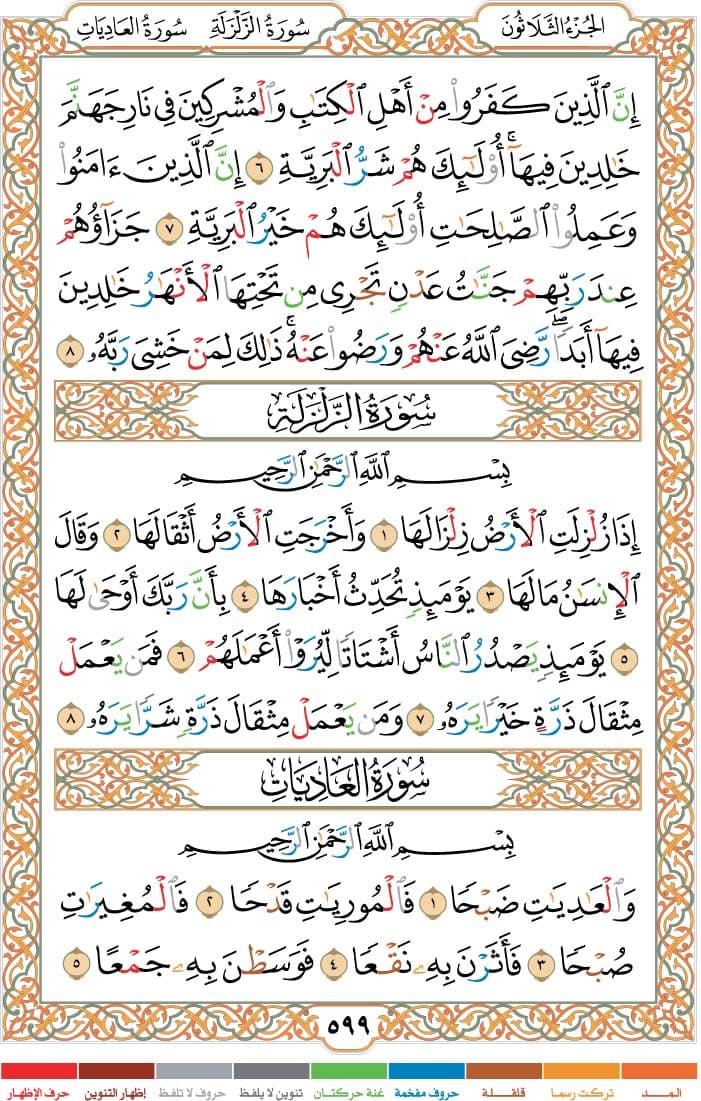 الجُزْءُ الثَّلَاثُونَ سُورَةُ الزَّلْزَلَةِ سُورَةُ العَادِيَاتِ
إِنَّ ٱلَّذِينَ كَفَرُوا۟ مِنْ أَهْلِ ٱلْكِتَٰبِ وَٱلْمُشْرِكِينَ فِى نَارِ جَهَنَّمَ
خَٰلِدِينَ فِيهَآ ۚ أُو۟لَٰٓئِكَ هُمْ شَرُّ ٱلْبَرِيَّةِ ٦ إِنَّ ٱلَّذِينَ ءَامَنُوا۟
وَعَمِلُوا۟ ٱلصَّٰلِحَٰتِ أُو۟لَٰٓئِكَ هُمْ خَيْرُ ٱلْبَرِيَّةِ ٧ جَزَآؤُهُمْ
عِندَ رَبِّهِمْ جَنَّٰتُ عَدْنٍ تَجْرِى مِن تَحْتِهَا ٱلْأَنْهَٰرُ خَٰلِدِينَ
فِيهَآ أَبَدًا ۖ رَّضِىَ ٱللَّهُ عَنْهُمْ وَرَضُوا۟ عَنْهُ ۚ ذَٰلِكَ لِمَنْ خَشِىَ رَبَّهُۥ ٨
سُورَةُ الزَّلْزَلَةِ
بِسْمِ ٱللَّهِ ٱلرَّحْمَٰنِ ٱلرَّحِيمِ
إِذَا زُلْزِلَتِ ٱلْأَرْضُ زِلْزَالَهَا ١ وَأَخْرَجَتِ ٱلْأَرْضُ أَثْقَالَهَا ٢ وَقَالَ
ٱلْإِنسَٰنُ مَا لَهَا ٣ يَوْمَئِذٍ تُحَدِّثُ أَخْبَارَهَا ٤ بِأَنَّ رَبَّكَ أَوْحَىٰ لَهَا
٥ يَوْمَئِذٍ يَصْدُرُ ٱلنَّاسُ أَشْتَاتًا لِّيُرَوْا۟ أَعْمَٰلَهُمْ ٦ فَمَن يَعْمَلْ
مِثْقَالَ ذَرَّةٍ خَيْرًا يَرَهُۥ ٧ وَمَن يَعْمَلْ مِثْقَالَ ذَرَّةٍ شَرًّا يَرَهُۥ ٨
سُورَةُ العَادِيَاتِ
بِسْمِ ٱللَّهِ ٱلرَّحْمَٰنِ ٱلرَّحِيمِ
وَٱلْعَٰدِيَٰتِ ضَبْحًا ١ فَٱلْمُورِيَٰتِ قَدْحًا ٢ فَٱلْمُغِيرَٰتِ
صُبْحًا ٣ فَأَثَرْنَ بِهِۦ نَقْعًا ٤ فَوَسَطْنَ بِهِۦ جَمْعًا ٥
٥٩٩
المـــد تركت رسما قلقـــلة حروف مفخمة غنة حركتـان تنوين لا يلفظ حروف لا تلفظ إظهار التنوين حرف الإظهار